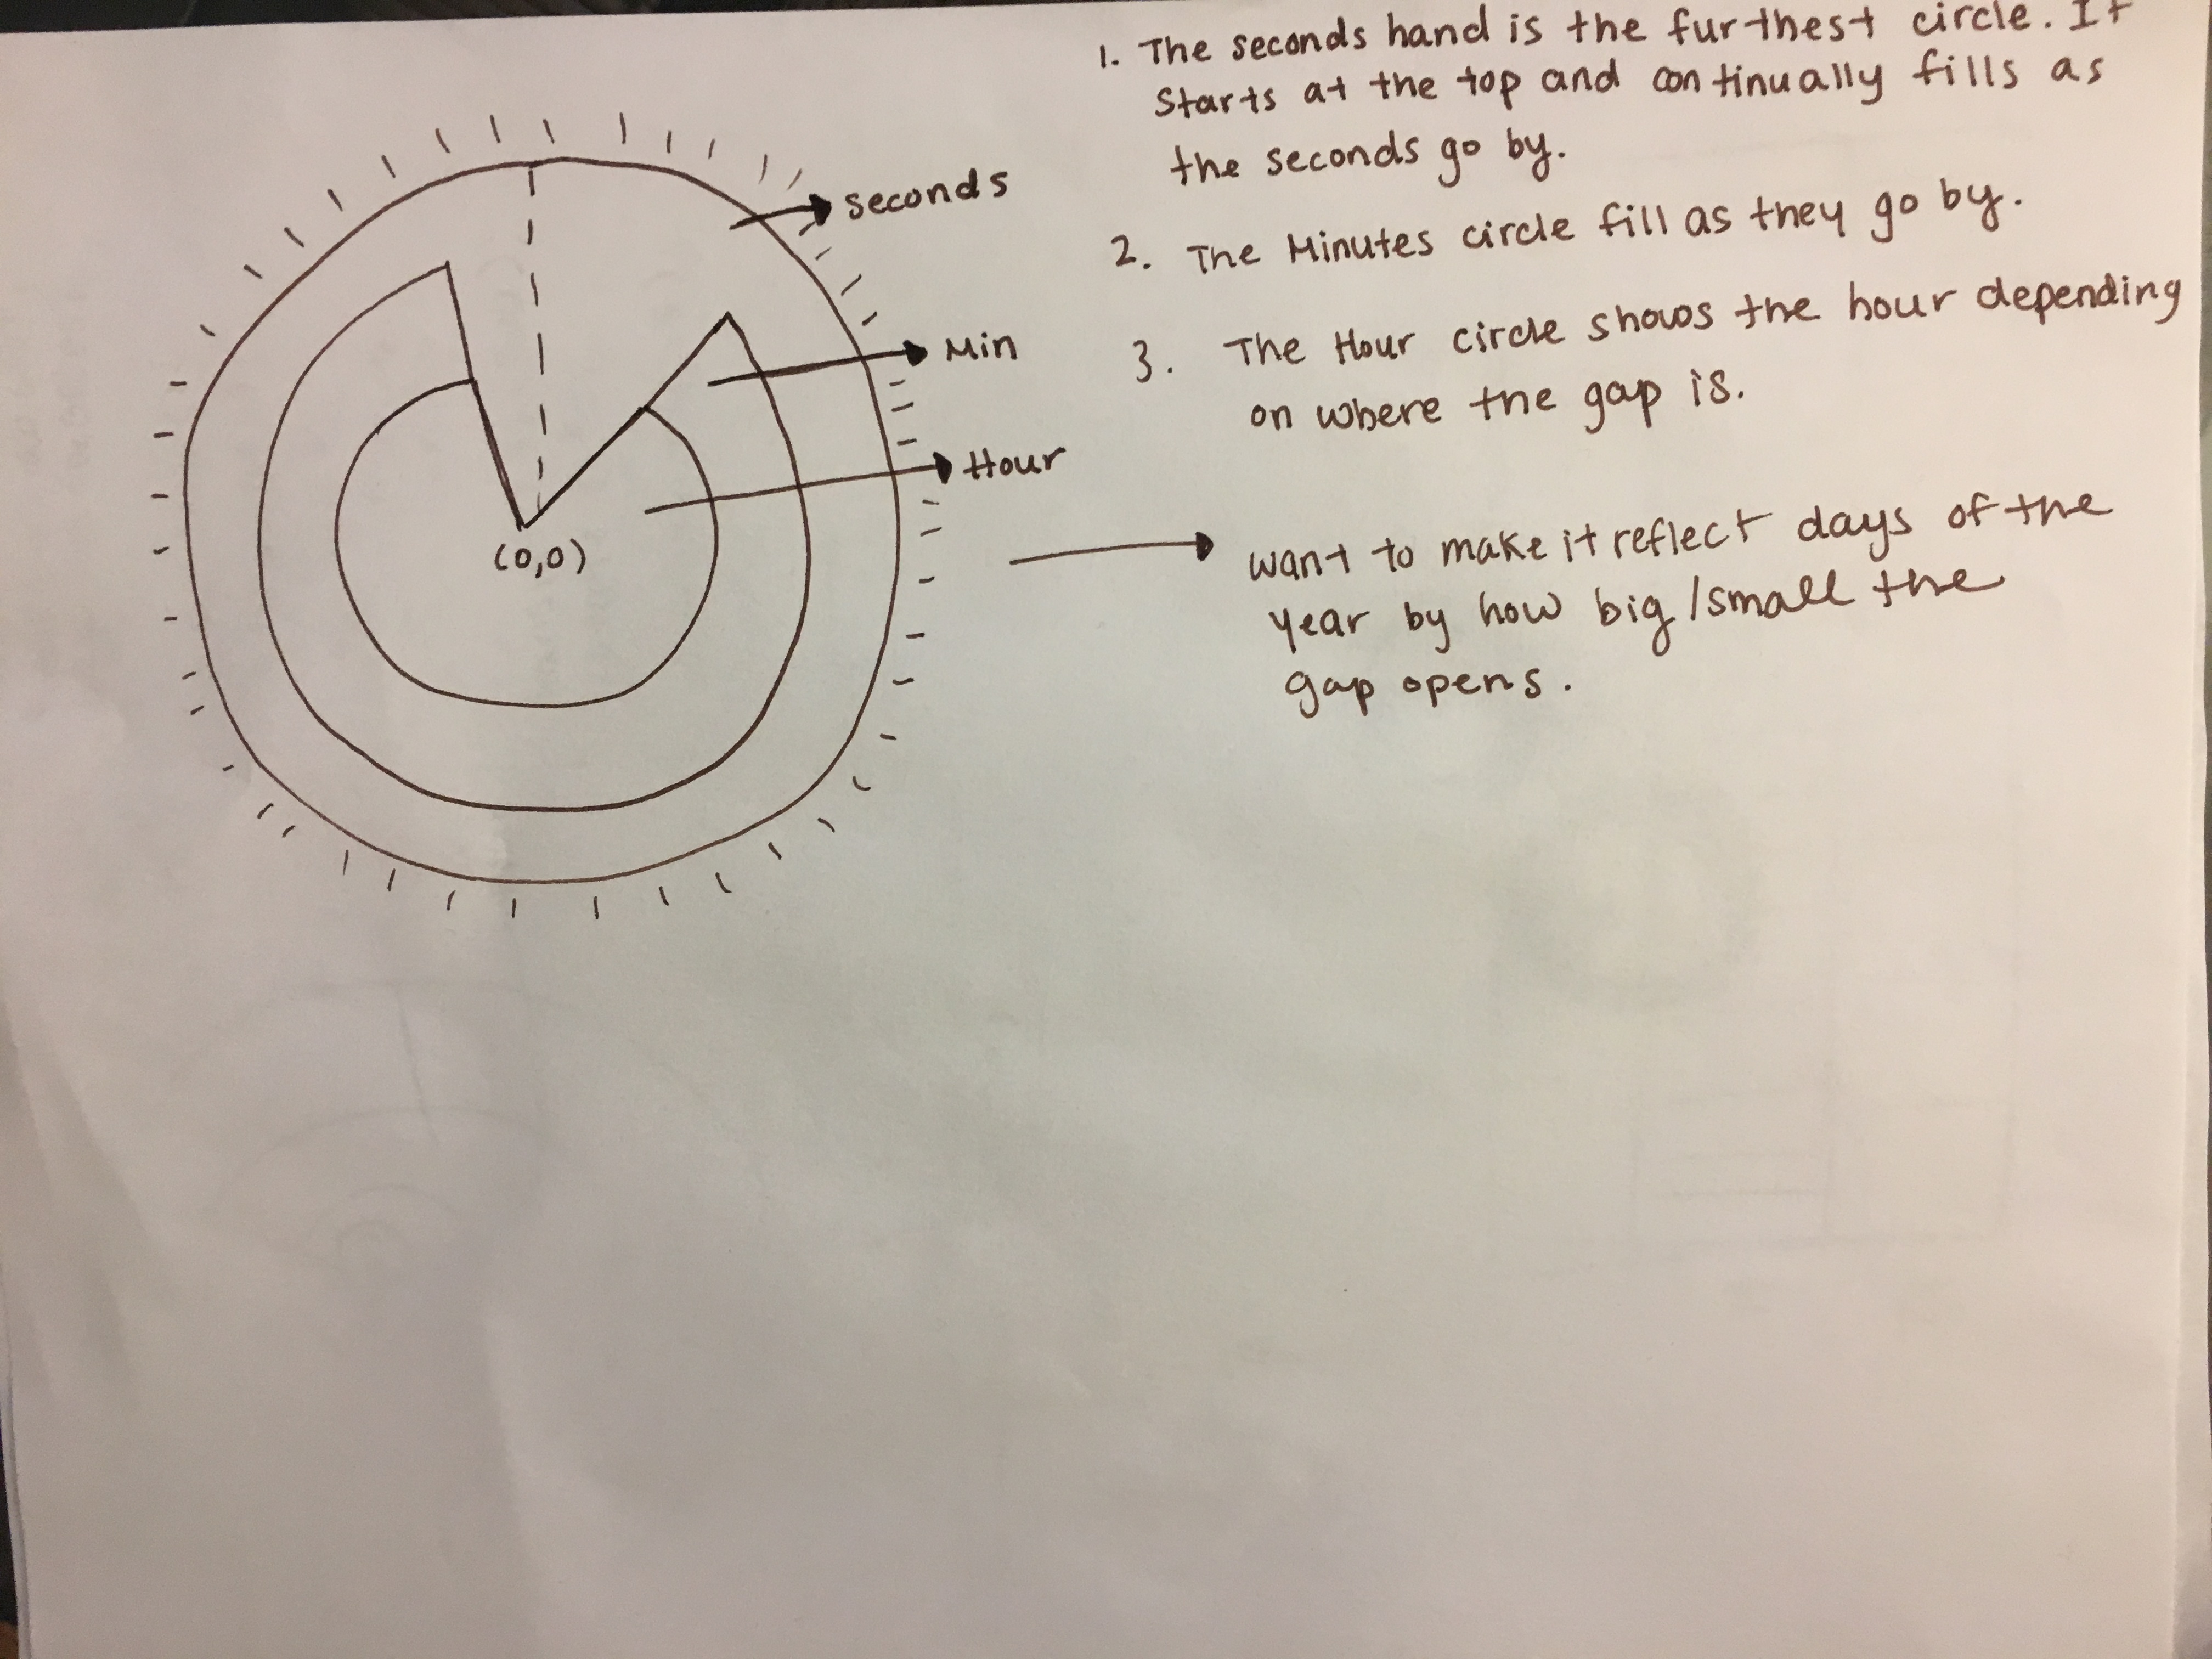 1. The seconds hand is the furthest circle. It
Starts at the top and continually fills as
the seconds go by.
2. The Minutes circle fill as they go by.
3. The Hour circle shows the hour depending
on where the gap is.
want to make it reflect days of the
year by how big/small the
gap opens.
seconds
Min
Hour
(0,0)